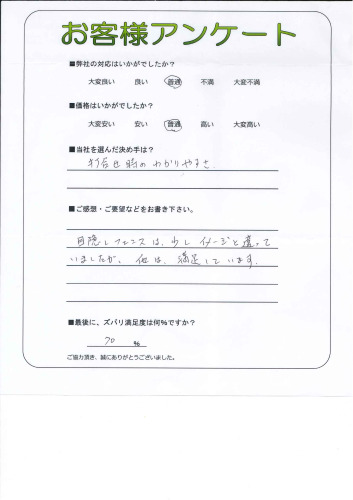 お客様アンケート
■弊社の対応はいかがでしたか？
大変良い 良い 普通 不満 大変不満
■価格はいかがでしたか？
大変安い 安い 普通 高い 大変高い
■当社を選んだ決め手は？
打合せ時のわかりやすさ。
■ご感想・ご要望などをお書き下さい。
目隠しフェンスは、少しイメージと違って
いましたが、他は、満足しています。
■最後に、ズバリ満足度は何%ですか？
70 %
ご協力頂き、誠にありがとうございました。